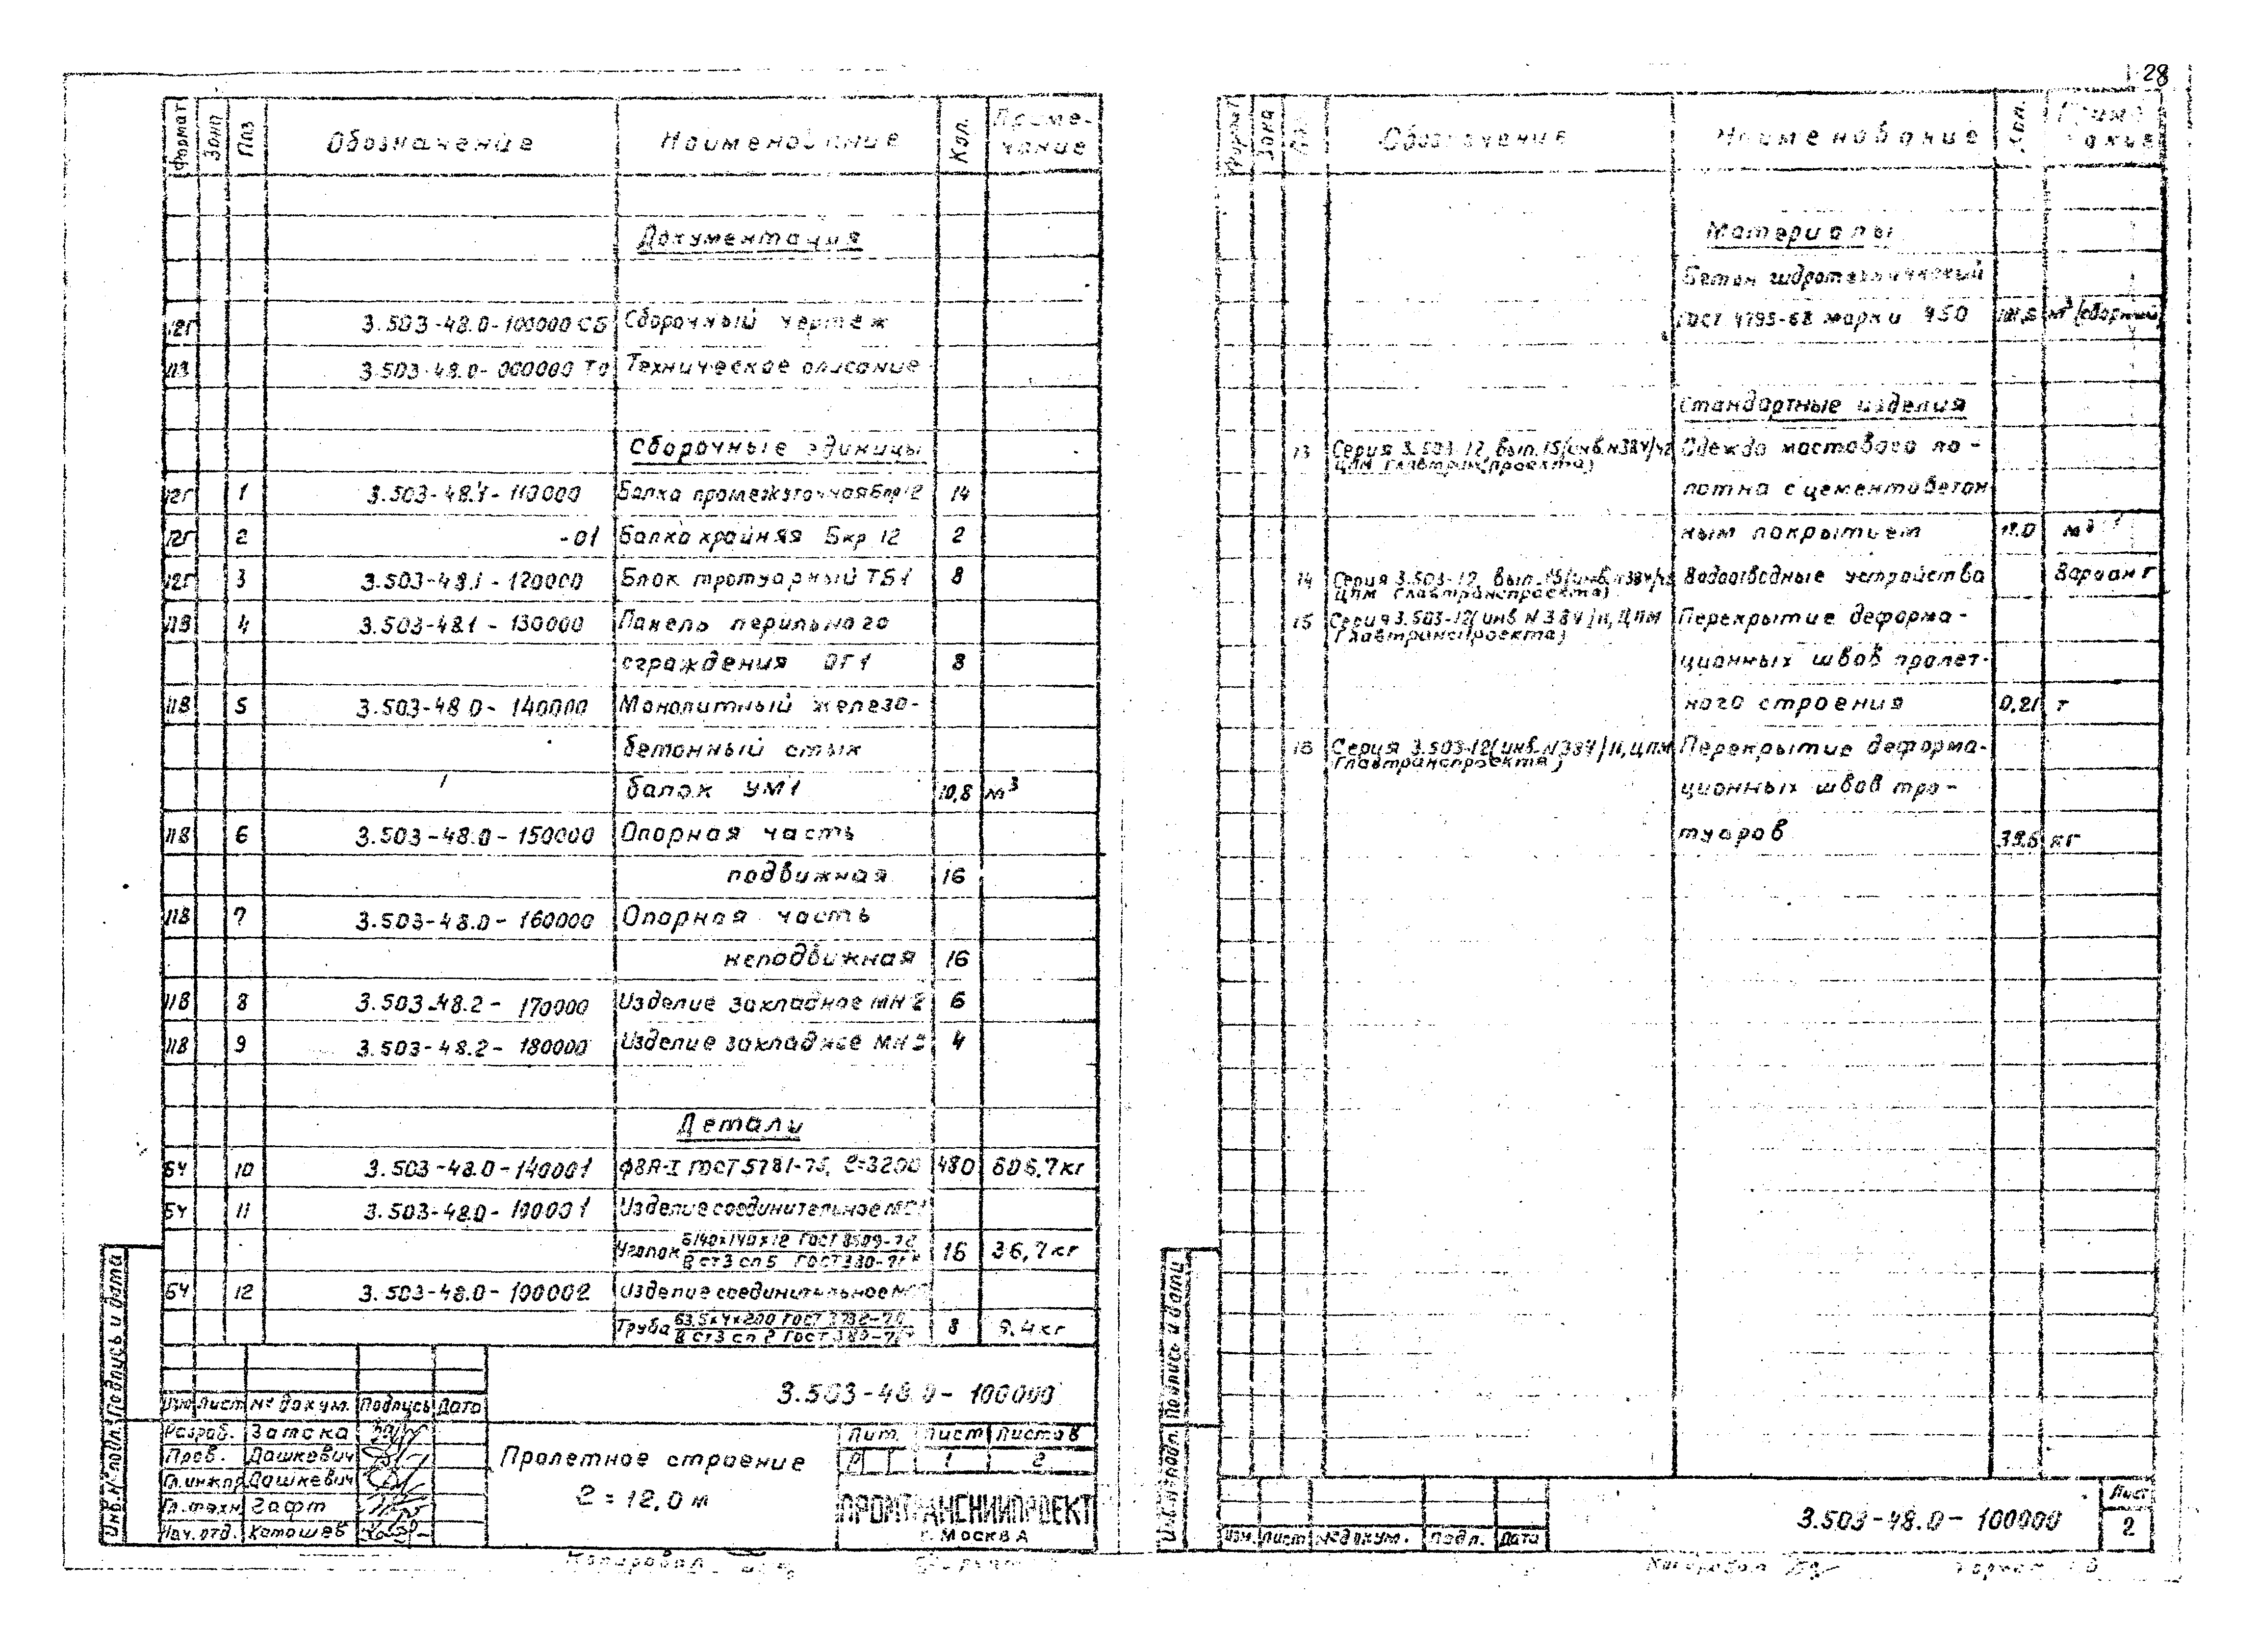 28
Формат Зона Поз Обозначение Наименование Кол. Приме-
чание
Документация
12Г 3.503-48.0-100000 СБ Сборочный чертеж
11В 3.503-48.0-000000 ТО Техническое описание
Сборочные единицы
12Г 1 3.503-48.1-110000 Балка промежуточная Бпр12 14
12Г 2 -01 Балка крайняя Бкр 12 2
12Г 3 3.503-48.1-120000 Блок тротуарный ТБ1 8
11В 4 3.503-48.1-130000 Панель перильного
ограждения ОГ1 8
11В 5 3.503-48.0-140000 Монолитный железо-
бетонный стык
балок УМ1 10,8 м³
11В 6 3.503-48.0-150000 Опорная часть
подвижная 16
11В 7 3.503-48.0-160000 Опорная часть
неподвижная 16
11В 8 3.503-48.2-170000 Изделие закладное МН2 6
11В 9 3.503-48.2-180000 Изделие закладное 4
Детали
БЧ 10 3.503-48.0-140001 ф8А-I ГОСТ 5781-75, ℓ=3200 480 606,7кг
БЧ 11 3.503-48.0-100001 Изделие соединительное МС1
Уголок Б140х140х12 ГОСТ 8509-72 16 36,7кг
В ст3 сп5 ГОСТ 380-71*
БЧ 12 3.503-48.0-100002 Изделие соединительное
Труба 63,5х4х200 ГОСТ 8 9,4кг
В Ст3 сп 2 ГОСТ 380-71*
3.503-48.0-100000
Изм Лист № докум. Подпись Дата
Разраб. Затока
Пров. Дашкевич
Гл.инж.пр Дашкевич
Гл.техн Гафт
Нач.отд.
Пролетное строение
ℓ = 12,0 м
Лит. Лист Листов
Р 1 2
ПРОМТРАНСНИИПРОЕКТ
г. Москва
Инв.№ подл. Подпись и дата
Копировал
Формат
Формат Зона Поз Обозначение Наименование Кол. Приме-
чание
Материалы
Бетон гидротехнический
ГОСТ 4795-68 марки 450 м³ (сборный)
Стандартные изделия
13 Серия 3.503-12, вып.15(инв.№384/42 Одежда мостового по-
ЦПМ Главтранспроекта)
лотна с цементобетон
ным покрытием м³
14 Серия 3.503-12, вып.15(инв.№384/42 Водоотводные устройства Вариант
ЦПМ Главтранспроекта)
15 Серия 3.503-12(инв №384/11, ЦПМ Перекрытие деформа-
Главтранспроекта)
ционных швов пролет-
ного строения 0,21 т
16 Серия 3.503-12(инв.№384/11, ЦПМ Перекрытие деформа-
Главтранспроекта)
ционных швов тро-
туаров кг
Инв.№ подл. Подпись и дата
Изм. Лист № докум. Подп. Дата
3.503-48.0-100000
Лист
2
Копировал
Формат